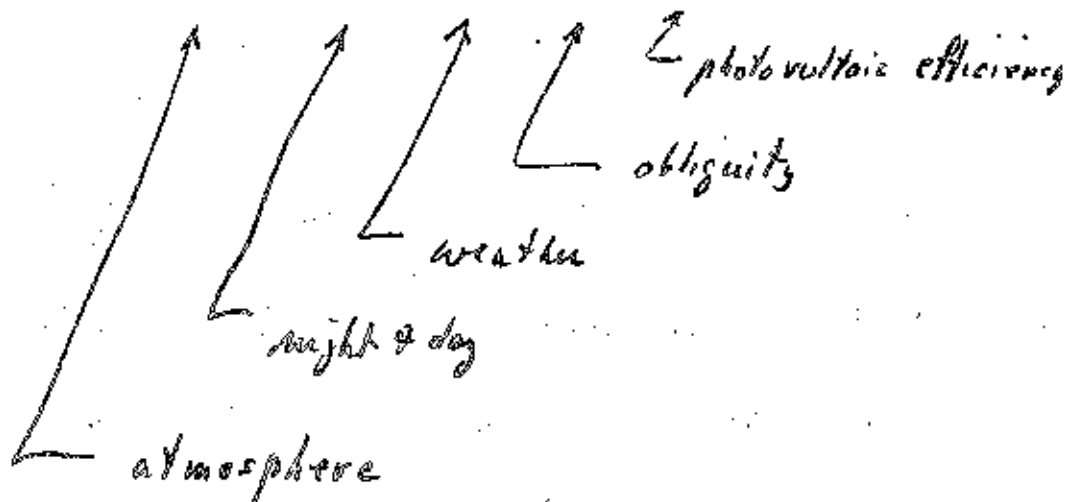 photovoltaic efficiency
obliquity
weather
night & day
atmosphere